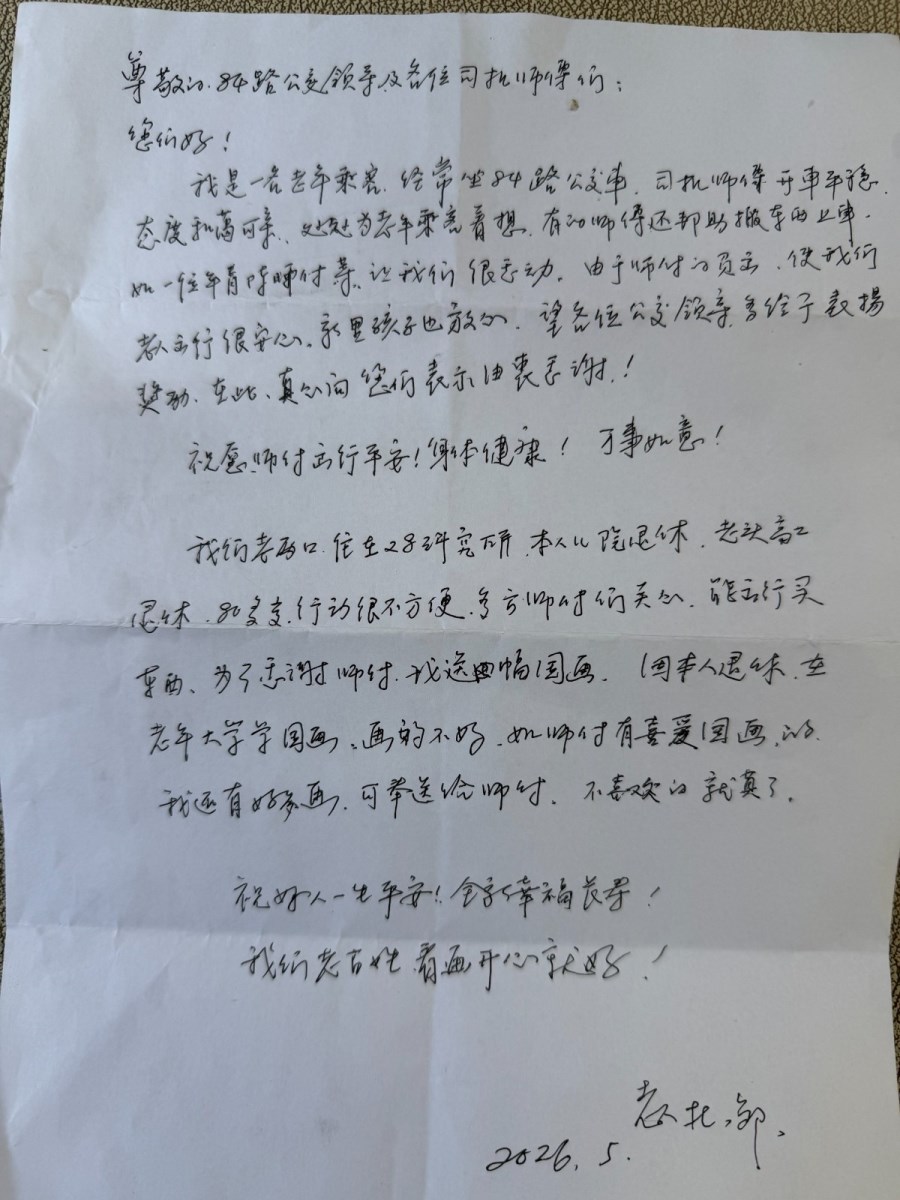 尊敬的84路公交领导及各位司机师傅们:
您们好!
我是一名老年乘客.经常坐84路公交車.司机师傅开車平稳.
态度和蔼可亲、处处为老年乘客着想.有的师傅还帮助搬东西上車.
如一位年青陈师付等.让我们很感动.由于师付的负责.使我们
老人出行很安心.家里孩子也放心.望各位公交领导多给予表揚
奖励.在此、真心向您们表示由衷感谢!
祝愿师付出行平安!身体健康!万事如意!
我们老两口.住在28研究所.本人儿院退休.老头高工
退休.80多岁.行动很不方便.多亏师付们关心.能出行买
东西、为了感谢师付.我送四幅国画.因本人退休.在
老年大学学国画.画的不好.如师付有喜爱国画的.
我还有好多画.可奉送给师付.不喜欢的就算了.
祝好人一生平安!全家幸福长寿!
我们老百姓看画开心就好!
老人
2026.5.